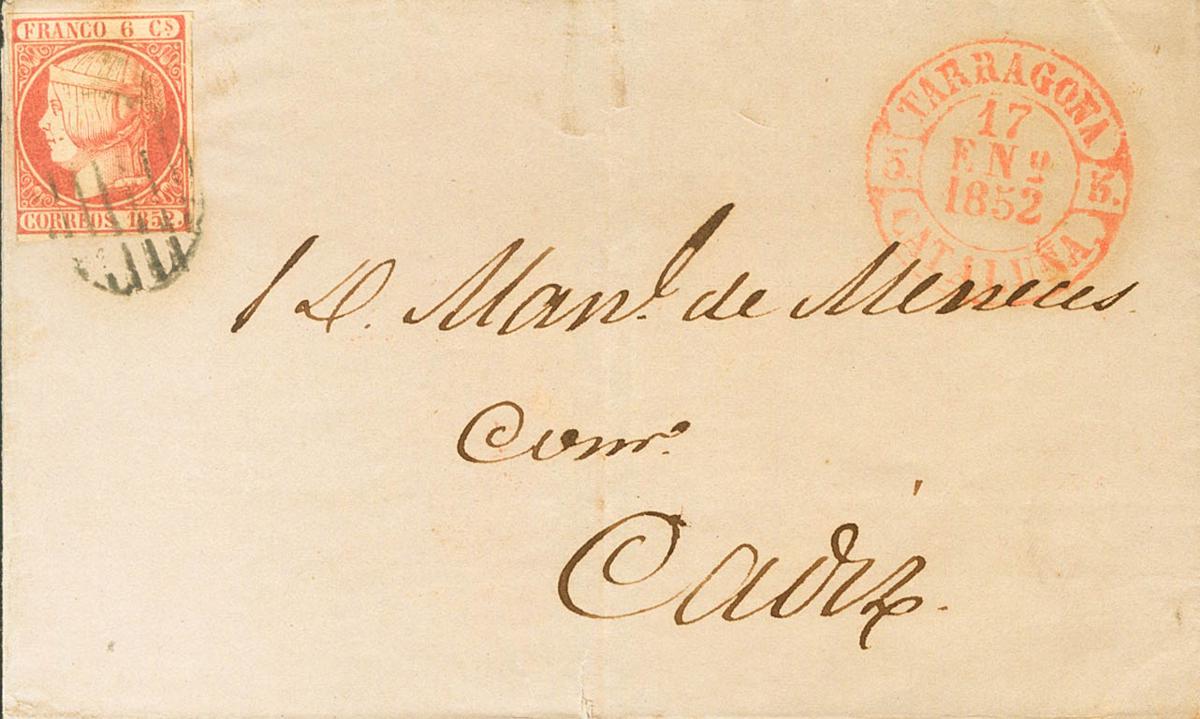 FRANCO 6 Cs
CORREOS 1852.
TARRAGONA
17
ENº
1852
5. 5.
CATALUÑA
D. Manl. de Meneces
Comº
Cadiz.